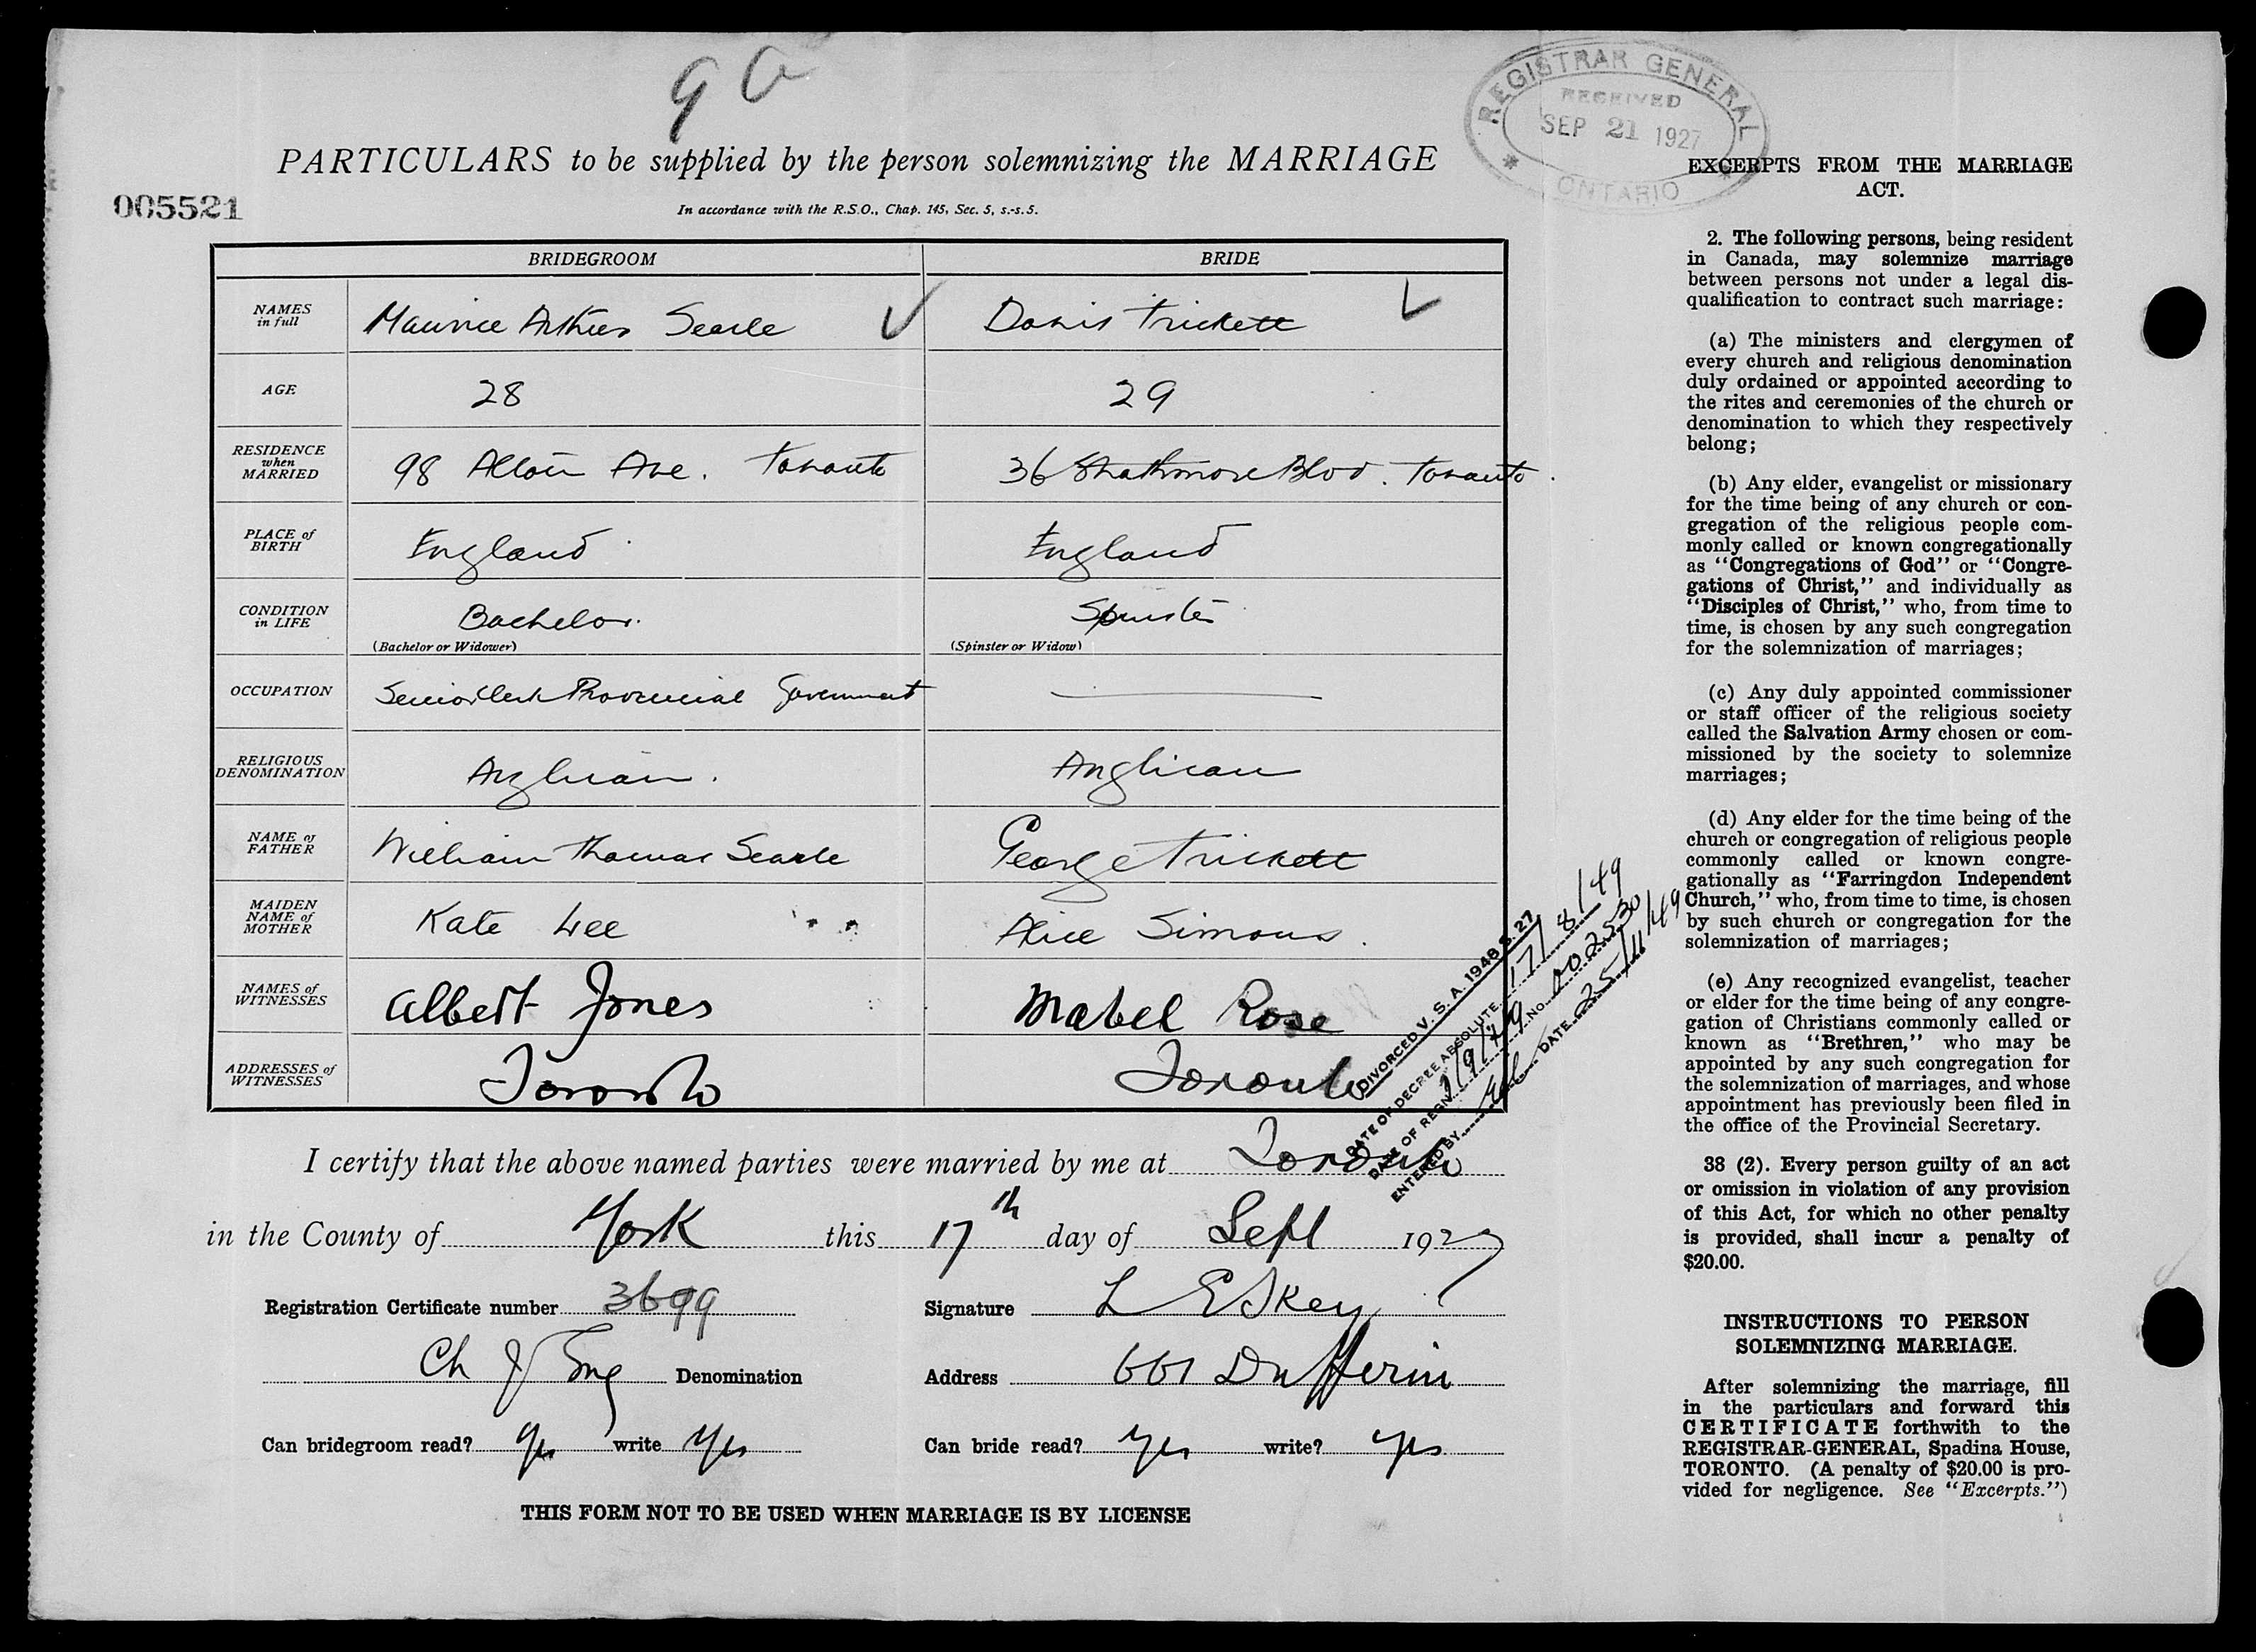 9 a
REGISTRAR GENERAL
RECEIVED
SEP 21 1927
ONTARIO
PARTICULARS to be supplied by the person solemnizing the MARRIAGE
005521
In accordance with the R.S.O., Chap. 145, Sec. 5, s.-s. 5.
BRIDEGROOM BRIDE
NAMES in full Maurice Arthur Searle Doris Trickett
AGE 28 29
RESIDENCE when MARRIED 98 Alton Ave. Toronto 36 Strathmore Blvd. Toronto.
PLACE of BIRTH England England
CONDITION in LIFE Bachelor. Spinster
(Bachelor or Widower) (Spinster or Widow)
OCCUPATION Senior Clerk Provincial Government
RELIGIOUS DENOMINATION Anglican. Anglican
NAME of FATHER William Thomas Searle George Trickett
MAIDEN NAME of MOTHER Kate Lee Alice Simons.
NAMES of WITNESSES Albert Jones Mabel Rose
ADDRESSES of WITNESSES Toronto Toronto
DIVORCED V. S. A. 1948 S. 27
DATE OF DECREE ABSOLUTE 17/8/49
DATE OF REGN. 2/9/49 NO. 002530
ENTERED BY DATE 25/11/49
I certify that the above named parties were married by me at Toronto
in the County of York this 17th day of Sept 1927
Registration Certificate number 3699 Signature L E Skey
Ch of Eng Denomination Address 661 Dufferin
Can bridegroom read? Yes write Yes Can bride read? yes write? yes
THIS FORM NOT TO BE USED WHEN MARRIAGE IS BY LICENSE
EXCERPTS FROM THE MARRIAGE
ACT.
2. The following persons, being resident
in Canada, may solemnize marriage
between persons not under a legal dis-
qualification to contract such marriage:
(a) The ministers and clergymen of
every church and religious denomination
duly ordained or appointed according to
the rites and ceremonies of the church or
denomination to which they respectively
belong;
(b) Any elder, evangelist or missionary
for the time being of any church or con-
gregation of the religious people com-
monly called or known congregationally
as "Congregations of God" or "Congre-
gations of Christ," and individually as
"Disciples of Christ," who, from time to
time, is chosen by any such congregation
for the solemnization of marriages;
(c) Any duly appointed commissioner
or staff officer of the religious society
called the Salvation Army chosen or com-
missioned by the society to solemnize
marriages;
(d) Any elder for the time being of the
church or congregation of religious people
commonly called or known congre-
gationally as "Farringdon Independent
Church," who, from time to time, is chosen
by such church or congregation for the
solemnization of marriages;
(e) Any recognized evangelist, teacher
or elder for the time being of any congre-
gation of Christians commonly called or
known as "Brethren," who may be
appointed by any such congregation for
the solemnization of marriages, and whose
appointment has previously been filed in
the office of the Provincial Secretary.
38 (2). Every person guilty of an act
or omission in violation of any provision
of this Act, for which no other penalty
is provided, shall incur a penalty of
$20.00.
INSTRUCTIONS TO PERSON
SOLEMNIZING MARRIAGE.
After solemnizing the marriage, fill
in the particulars and forward this
CERTIFICATE forthwith to the
REGISTRAR-GENERAL, Spadina House,
TORONTO. (A penalty of $20.00 is pro-
vided for negligence. See "Excerpts.")